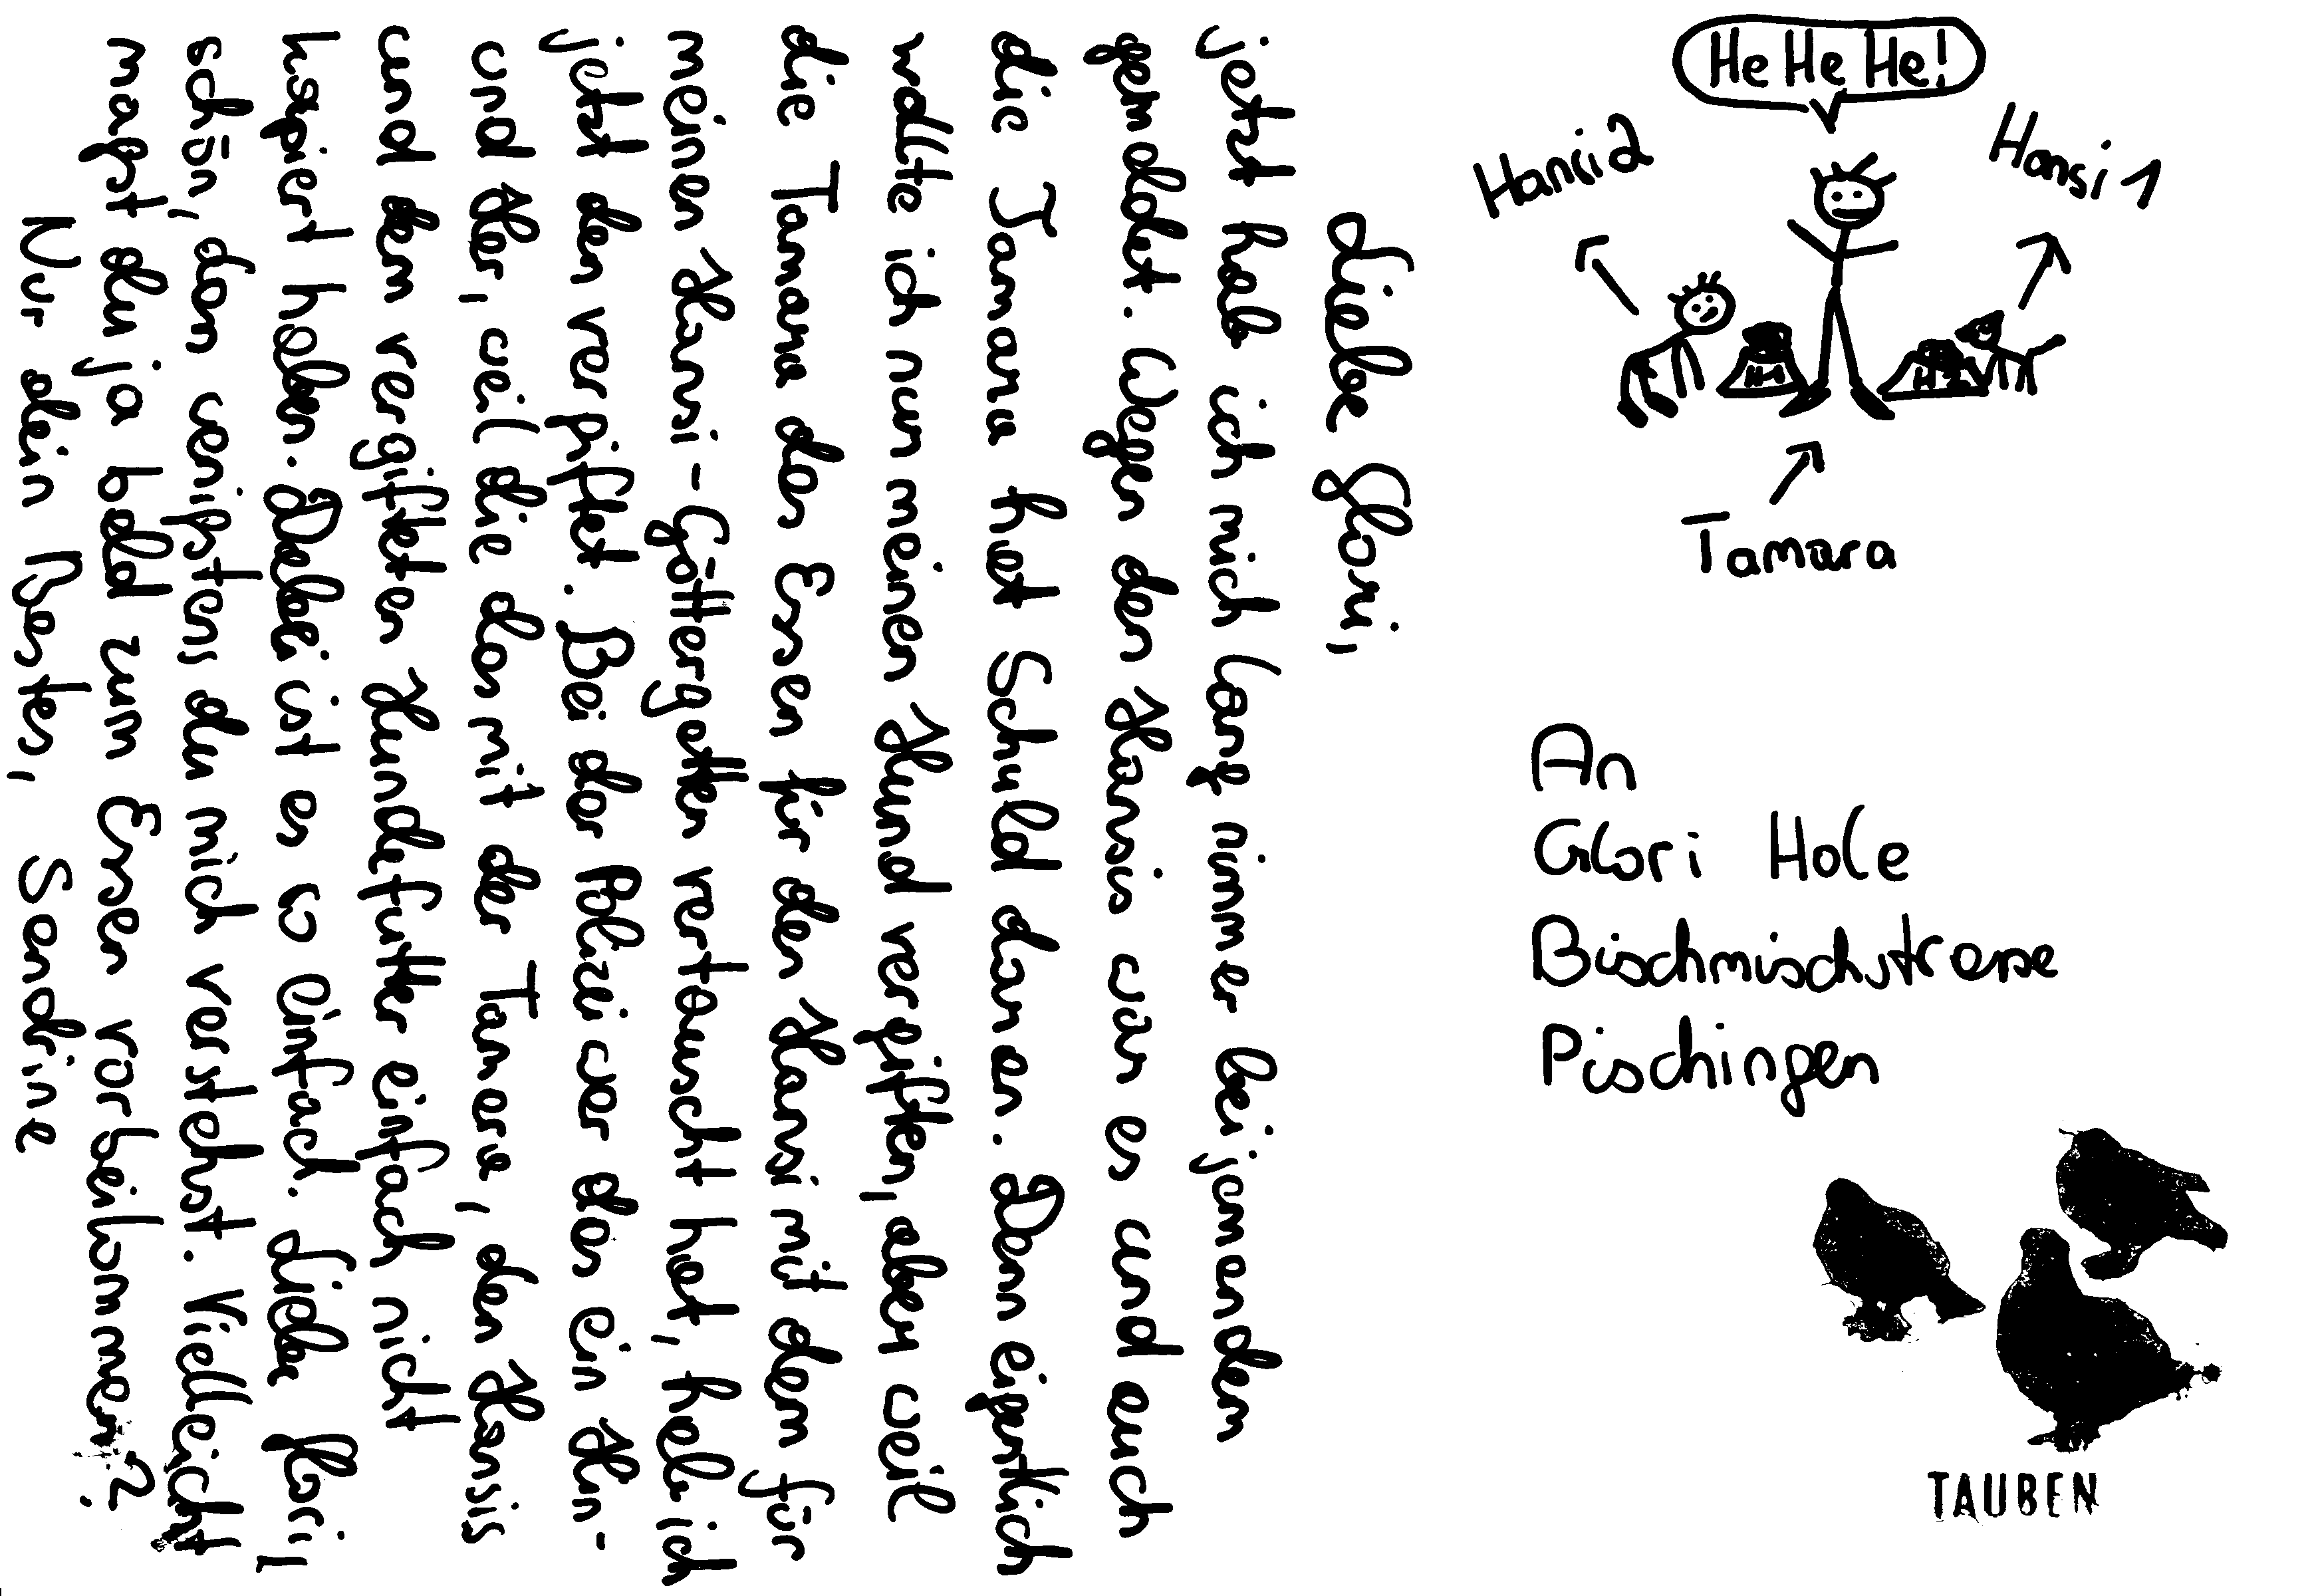 Liebe Glori,
jetzt hab ich mich lang nimmer bei jemandem
gemeldet. Wegen den Hansis war es und auch
die Tamara hat Schuld daran. Denn eigentlich
wollte ich nur meinen Hund vergiften, aber weil
die Tamara das Essen für den Hansi mit dem für
meinen Hansi-Göttergatten vertauscht hat, hab ich
jetzt den vergiftet. Bei der Polizei war das ein Hin-
und Her, weil die das mit der Tamara, den Hansis
und dem vergifteten Hundefutter einfach nicht
kapiert haben. Dabei ist es so einfach. Liebe Glori,
schön, dass wenigstens du mich verstehst. Vielleicht
magst du ja bald zum Essen vorbeikommen?
Nur dein Bestes, Sandrine
He He He!
Hansi 2
Hansi 1
Tamara
An
Glori Hole
Bischmischstrasse
Pischingen
TAUBEN